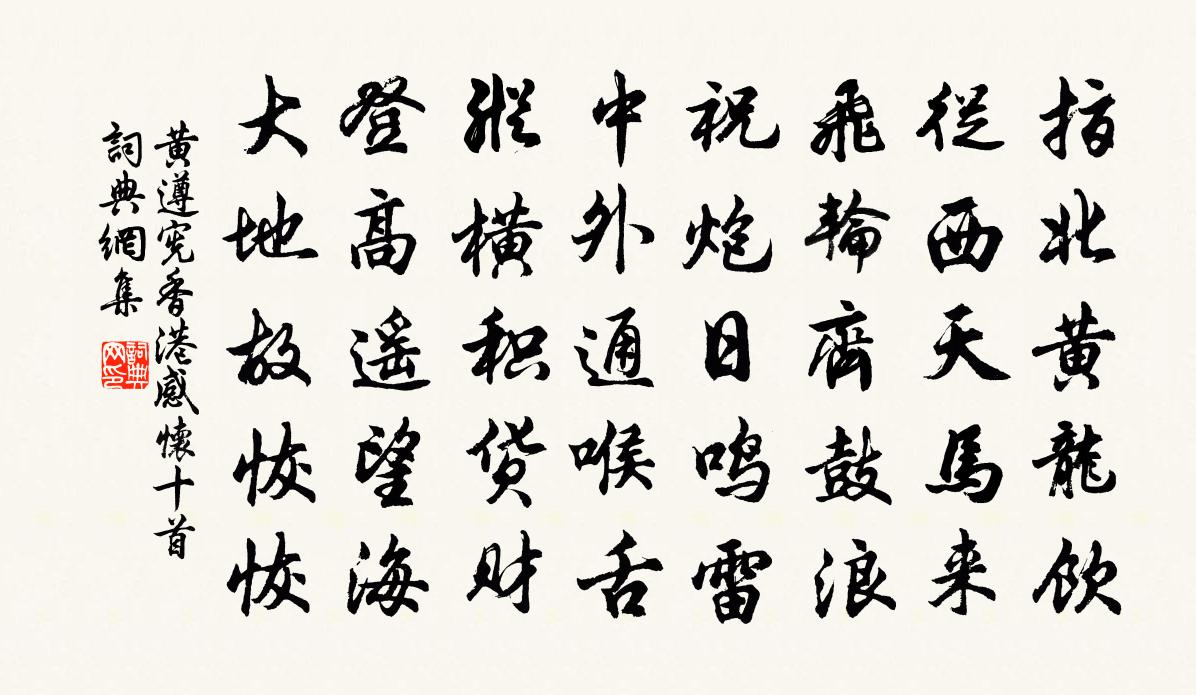 指北黄龍飲
従西天馬来
飛輪齊鼓浪
祝炮日鸣雷
中外通喉舌
縱横积货财
登高遥望海
大地故恢恢
黄遵宪香港感懷十首
詞典網集
詞典网印